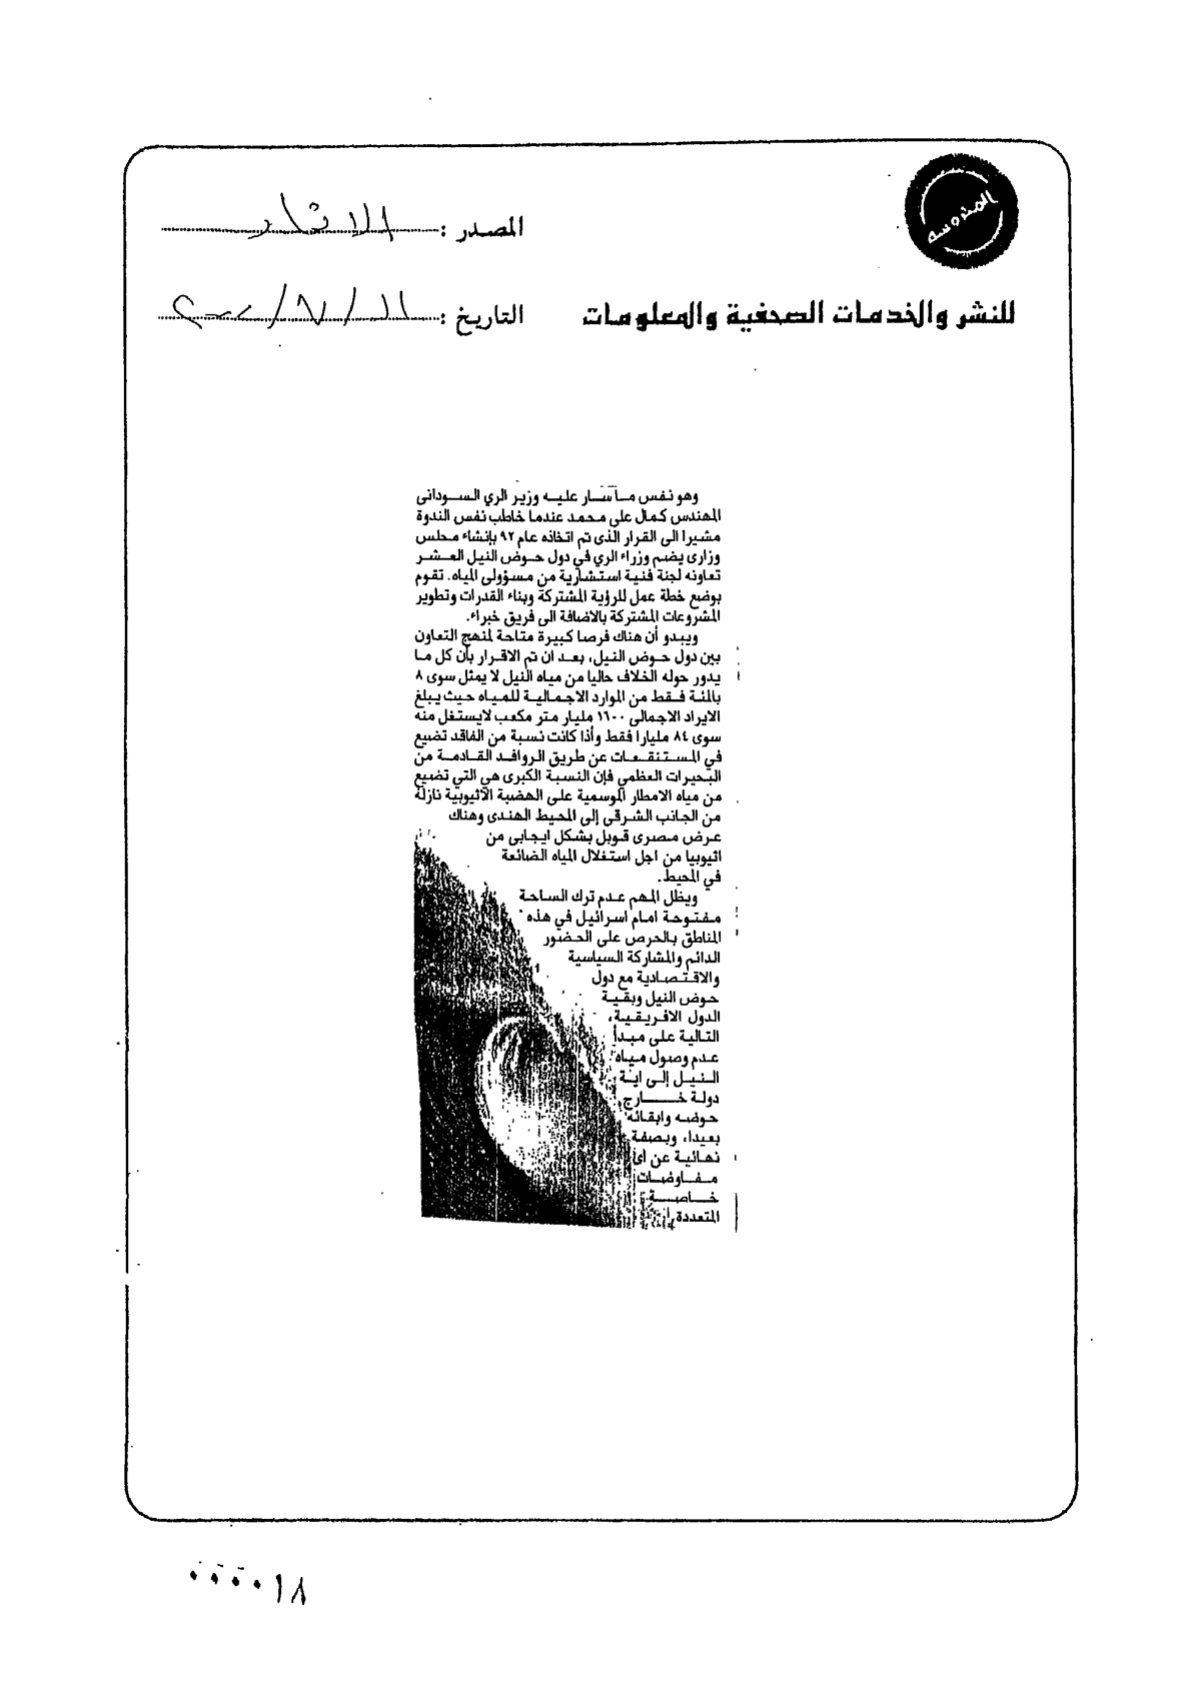 المحروسة
المصدر :
للنشر والخدمات الصحفية والمعلومات
التاريخ : ١١/٧/٢٠٠٠
وهو نفس ما سار عليه وزير الري السودانى
المهندس كمال على محمد عندما خاطب نفس الندوة
مشيرا الى القرار الذى تم اتخاذه عام ٩٢ بإنشاء مجلس
وزارى يضم وزراء الري في دول حوض النيل العشر
تعاونه لجنة فنية استشارية من مسؤولى المياه. تقوم
بوضع خطة عمل للرؤية المشتركة وبناء القدرات وتطوير
المشروعات المشتركة بالاضافة الى فريق خبراء.
ويبدو أن هناك فرصا كبيرة متاحة لمنهج التعاون
بين دول حوض النيل، بعد ان تم الاقرار بأن كل ما
يدور حوله الخلاف حاليا من مياه النيل لا يمثل سوى ٨
بالمئة فقط من الموارد الاجمالية للمياه حيث يبلغ
الايراد الاجمالى ١٦٠٠ مليار متر مكعب لايستغل منه
سوى ٨٤ مليارا فقط وأذا كانت نسبة من الفاقد تضيع
في المستنقعات عن طريق الروافد القادمة من
البحيرات العظمي فإن النسبة الكبرى هي التي تضيع
من مياه الامطار الموسمية على الهضبة الاثيوبية نازلة
من الجانب الشرقى إلى المحيط الهندى وهناك
عرض مصرى قوبل بشكل ايجابى من
اثيوبيا من اجل استغلال المياه الضائعة
في المحيط.
ويظل المهم عدم ترك الساحة
مفتوحة امام اسرائيل في هذه
المناطق بالحرص على الحضور
الدائم والمشاركة السياسية
والاقتصادية مع دول
حوض النيل وبقية
الدول الافريقية،
التالية على مبدأ
عدم وصول مياه
النيل إلى اية
دولة خارج
حوضه وابقائه
بعيدا، وبصفة
نهائية عن اى
مفاوضات
خاصة
المتعددة
٠٠٠٠١٨